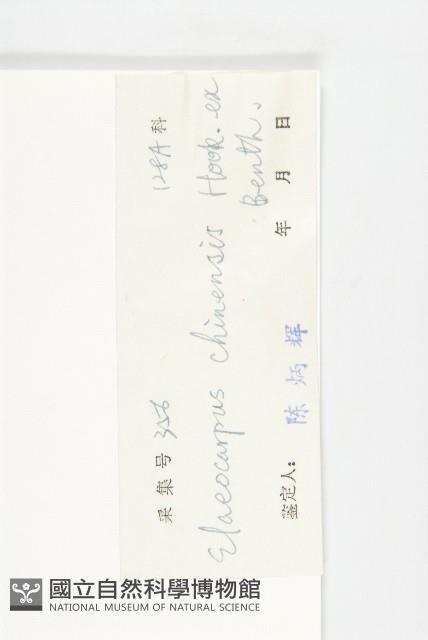 采集号 356 128A 科
Elaeocarpus chinensis Hook. ex
Benth.
鉴定人: 陈炳辉 年 月 日
國立自然科學博物館
NATIONAL MUSEUM OF NATURAL SCIENCE